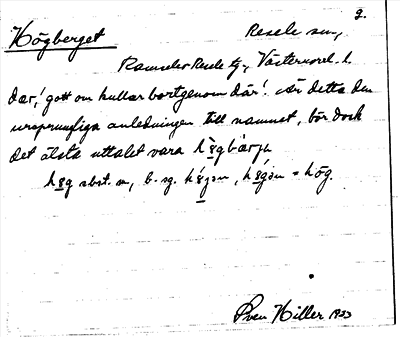 2.
Högberget Resele sn,
Ramsele o Resele tg, Västernorrl. l.
där,! gott om kullar bortgenom där! är detta den
ursprungliga anledningen till namnet, bör dock
det älsta uttalet vara
subst. m, b. sg. = hög.
Sven Hiller 1933